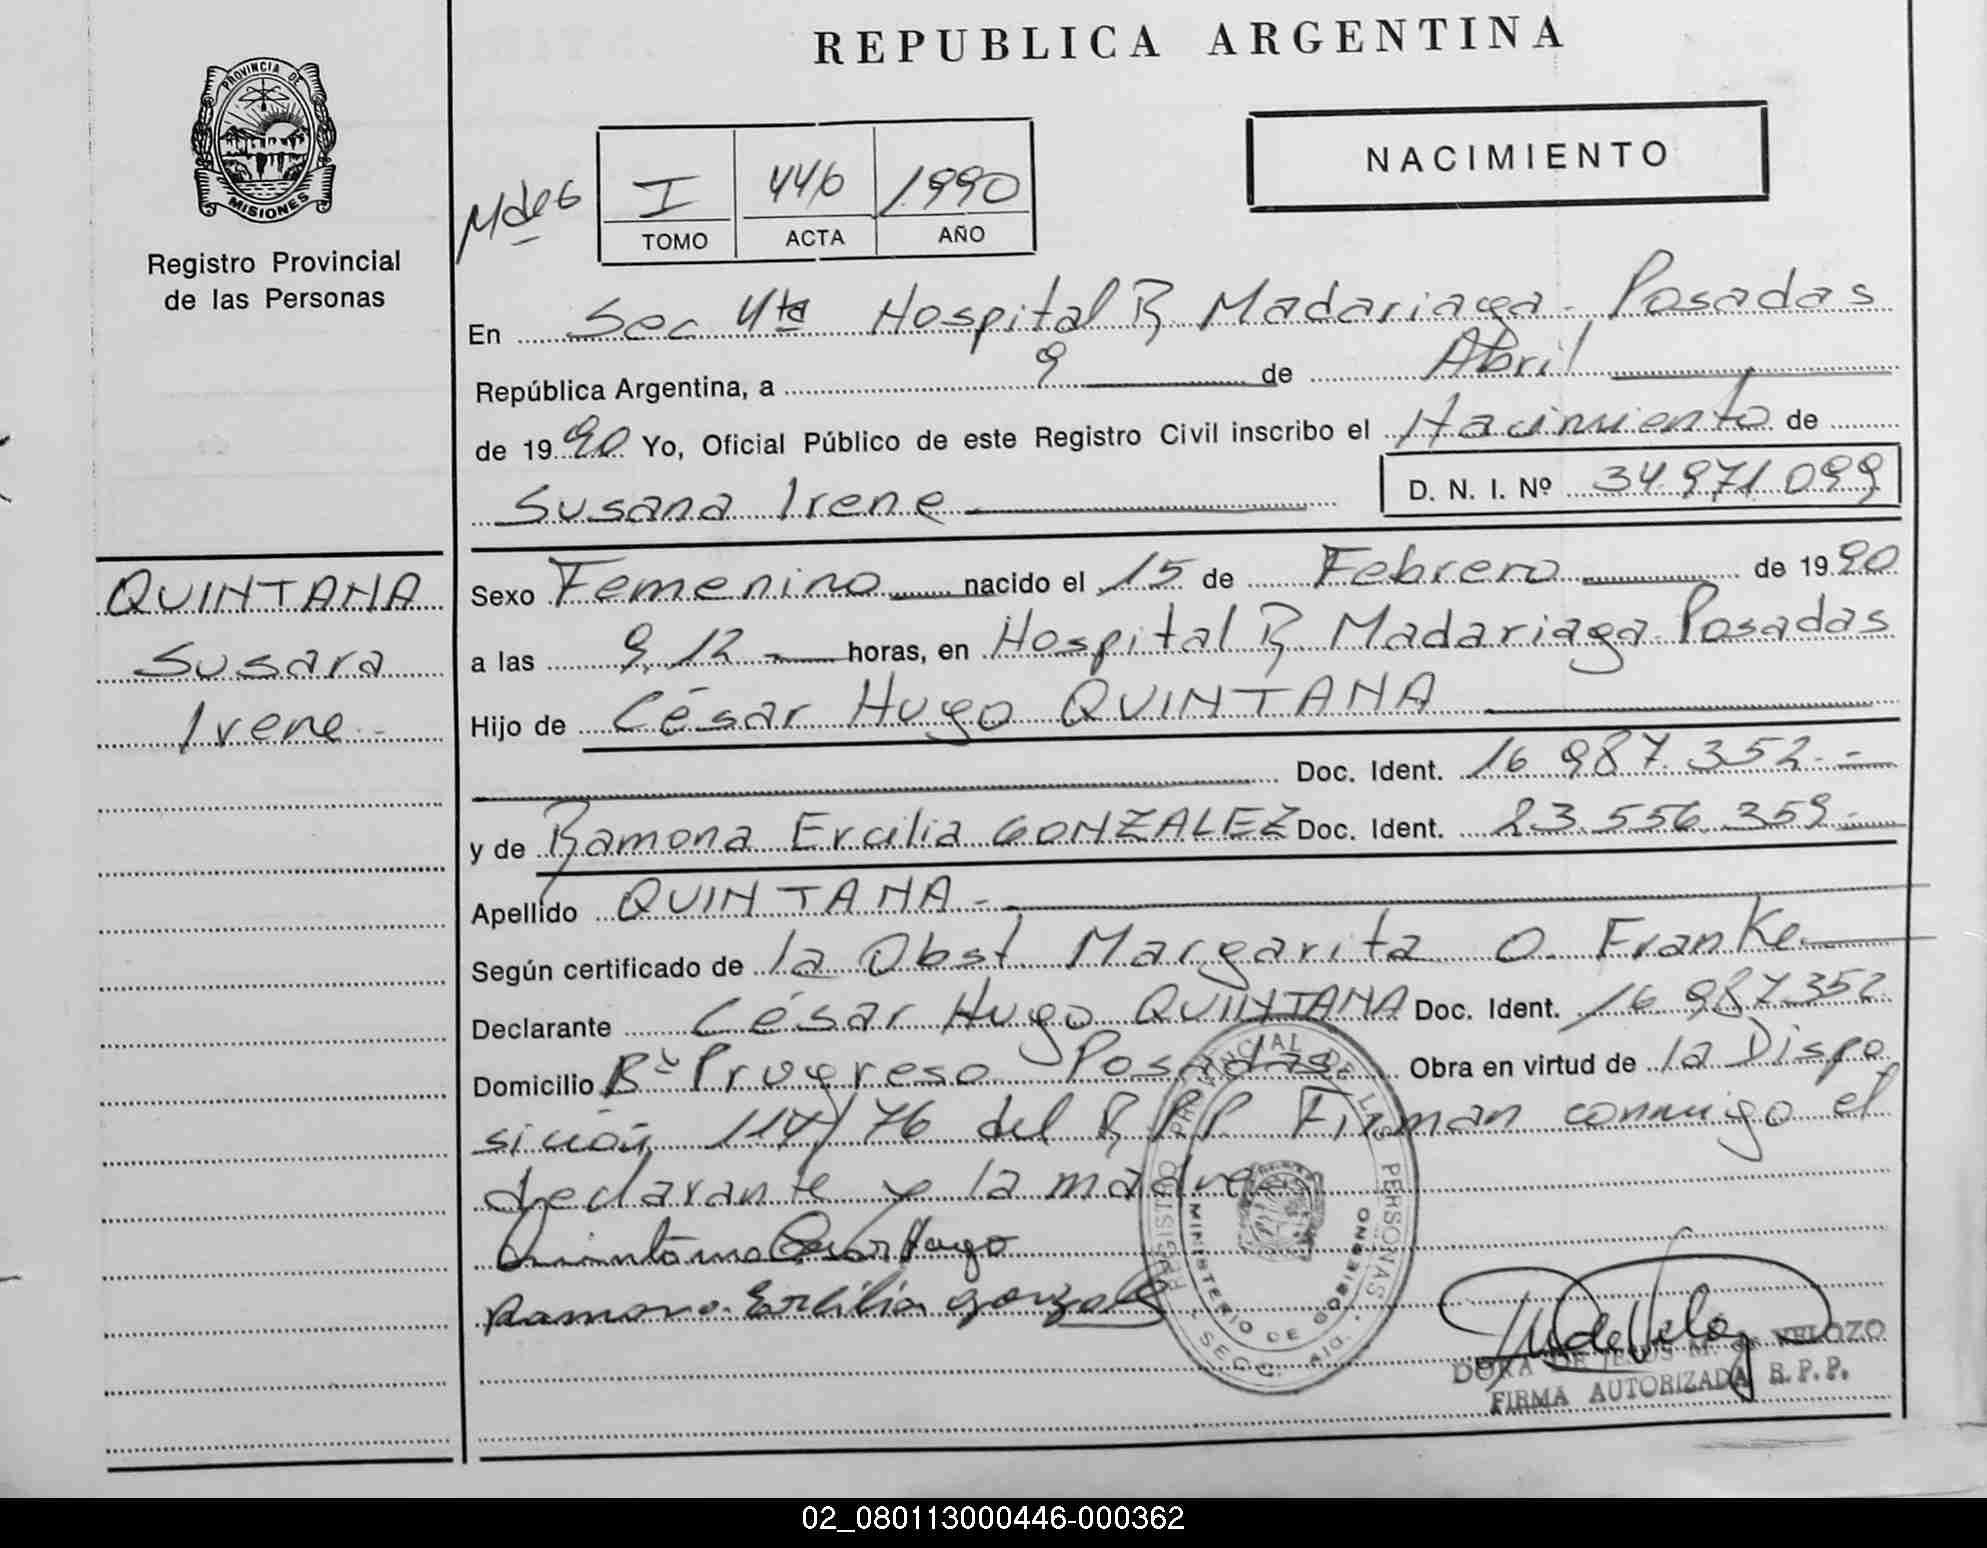 REPUBLICA ARGENTINA
PROVINCIA DE
MISIONES
Registro Provincial
de las Personas
NACIMIENTO
I 446 1990
TOMO ACTA AÑO
En Sec 4ta Hospital R Madariaga - Posadas
República Argentina, a 9 de Abril
de 1990 Yo, Oficial Público de este Registro Civil inscribo el Nacimiento de
Susana Irene
D. N. I. Nº 34.971.099
QUINTANA
Susana
Irene -
Sexo Femenino nacido el 15 de Febrero de 1990
a las 9,12 - horas, en Hospital R Madariaga - Posadas
Hijo de César Hugo QUINTANA
Doc. Ident. 16.987.352 -
y de Ramona Ercilia GONZALEZ Doc. Ident. 23.556.359 -
Apellido QUINTANA -
Según certificado de la Obst Margarita O. Franke
Declarante César Hugo QUINTANA Doc. Ident. 16.987.352
Domicilio Bº Progreso Posadas. Obra en virtud de la Dispo
sición 114/76 del R.P.P. Firman conmigo el
declarante y la madre
Quintana Cesar Hugo
Ramona Ercilia Gonzalez
REGISTRO PROVINCIAL DE LAS PERSONAS
MINISTERIO DE GOBIERNO
DORA DE JESUS M. de VELOZO
FIRMA AUTORIZADA R.P.P.
02_080113000446-000362